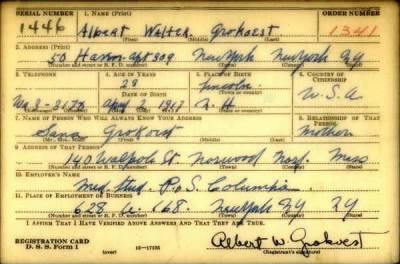 SERIAL NUMBER 1. NAME (Print) ORDER NUMBER
1446 Albert Walter Grokoest 1341
(First) (Middle) (Last)
2. ADDRESS (Print)
50 Haven Apt 309 New York New York NY
(Number and street or R. F. D. number) (Town) (County) (State)
3. TELEPHONE 4. AGE IN YEARS 5. PLACE OF BIRTH 6. COUNTRY OF CITIZENSHIP
23 Lincoln
DATE OF BIRTH (Town or county)
Wa 8-3170 1917 N. H. U. S. A
(Mo.) (Day) (Yr.) (State or country)
7. NAME OF PERSON WHO WILL ALWAYS KNOW YOUR ADDRESS 8. RELATIONSHIP OF THAT PERSON
Grokoest Mother
(Mr., Mrs., Miss) (First) (Middle) (Last)
9. ADDRESS OF THAT PERSON
140 Walpole St. Norwood Nor. Mass
(Number and street or R. F. D. number) (Town) (County) (State)
10. EMPLOYER'S NAME
Med. Stud. P. & S. Columbia
11. PLACE OF EMPLOYMENT OR BUSINESS
168 New York NY NY
(Number and street or R. F. D. number) (Town) (County) (State)
I AFFIRM THAT I HAVE VERIFIED ABOVE ANSWERS AND THAT THEY ARE TRUE.
REGISTRATION CARD
D. S. S. Form 1 (over) 16-17105 Albert W. Grokoest
(Registrant's signature)